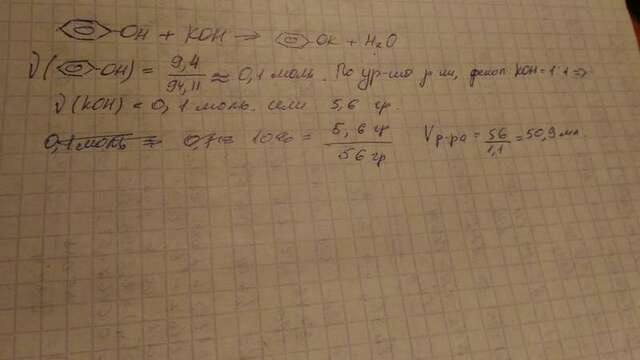 -OH + KOH → -OK + H₂O
ν( -OH) = 9,4/94,11 ≈ 0,1 моль. По ур-нию р-ии, фенол KOH = 1:1 ⇒
ν(KOH) = 0,1 моль. или 5,6 гр.
0,1 моль = 10% = 5,6 гр/56 гр Vр-ра = 56/1,1 = 50,9 мл.